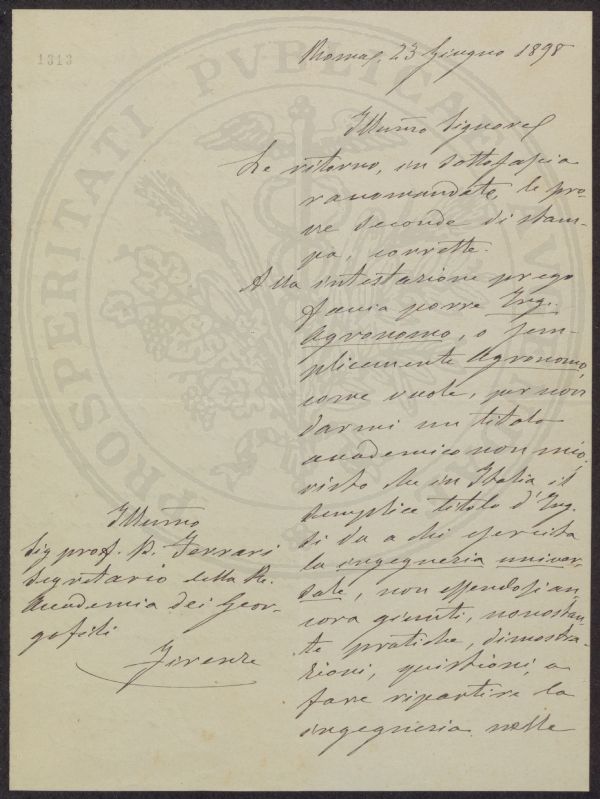 1313
PROSPERITATI PVBLICAE
Roma, 23 Giugno 1898
Illumo Signore
Le ritorno, in sottofascia
racomandate, le pro-
ve seconde di stam-
pa, corrette.
Alla intestazione prego
faccia porre Ing.
Agronomo, o sem-
plicemente Agronomo,
come vuole, per non
darmi un titolo
accademico non mio,
visto che in Italia il
semplice titolo d'Ing.
si da a chi esercita
la ingegneria univer-
sale, non essendosi an-
cora giunti, nonostan-
te pratiche, dimostra-
zioni, quistioni, a
fare ripartire la
ingegneria nelle
Illumo
Sig prof. P. Ferrari
Segretario della R.
Accademia dei Geor-
gofili
Firenze